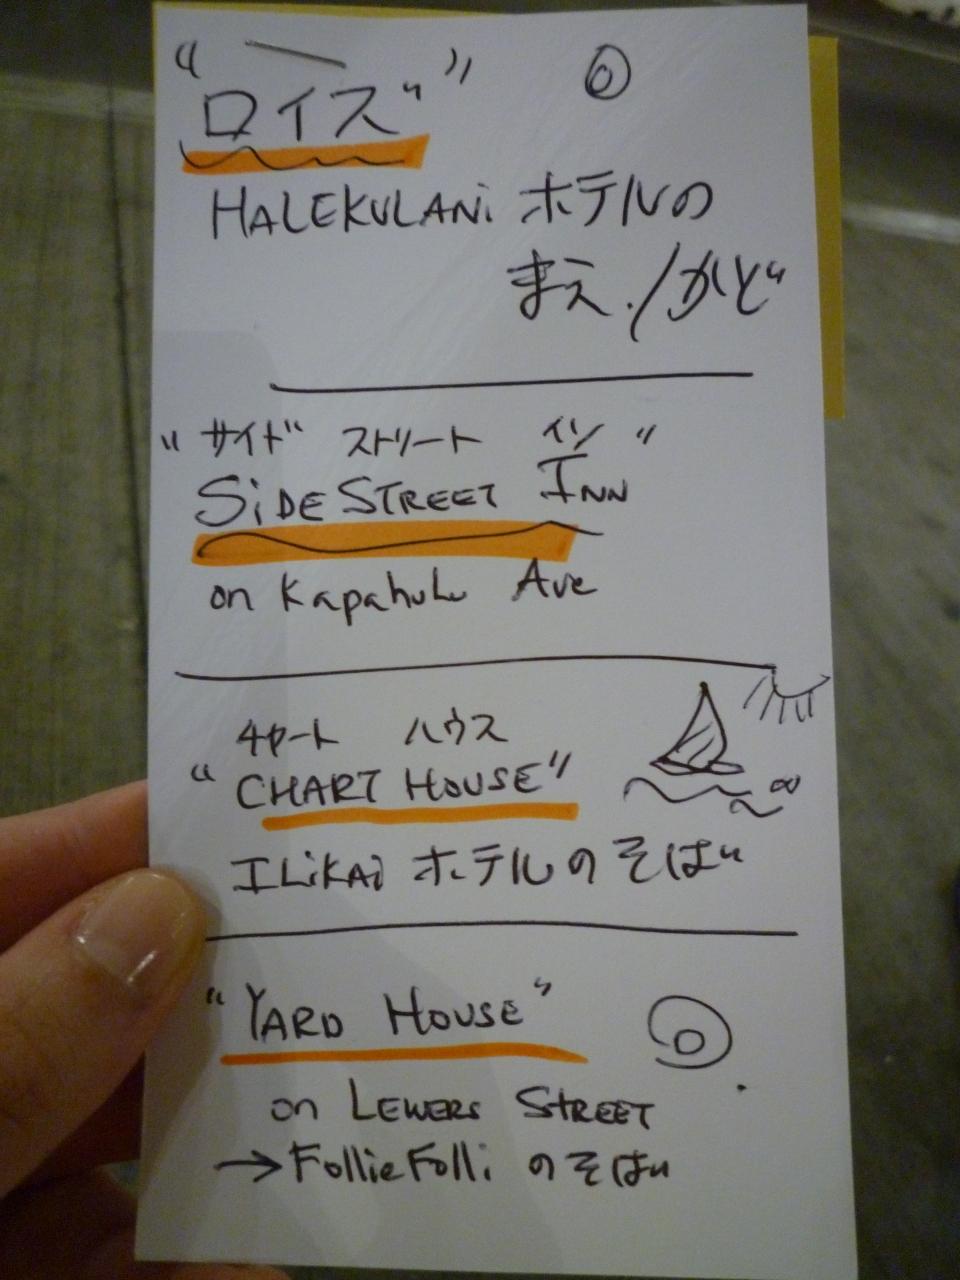 "ロイズ"
HALEKULANi ホテルの
まえ./かど
"サイド ストリート イン"
SiDE STREET INN
on Kapahulu Ave
チャート ハウス
"CHART HOUSE"
ILiKAi ホテルのそば
"YARD HOUSE"
on LEWERS STREET
→FollieFolli のそば